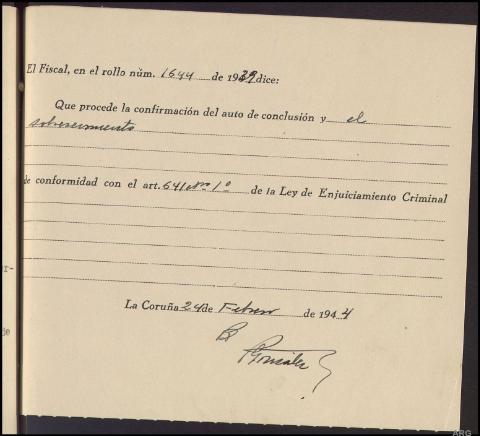 El Fiscal, en el rollo núm. 1644 de 1939 dice:
Que procede la confirmación del auto de conclusión y el
sobreseimiento
de conformidad con el art. 641 nº 1º de la Ley de Enjuiciamiento Criminal
r-
La Coruña 24 de Febrero de 1944
González
ARG